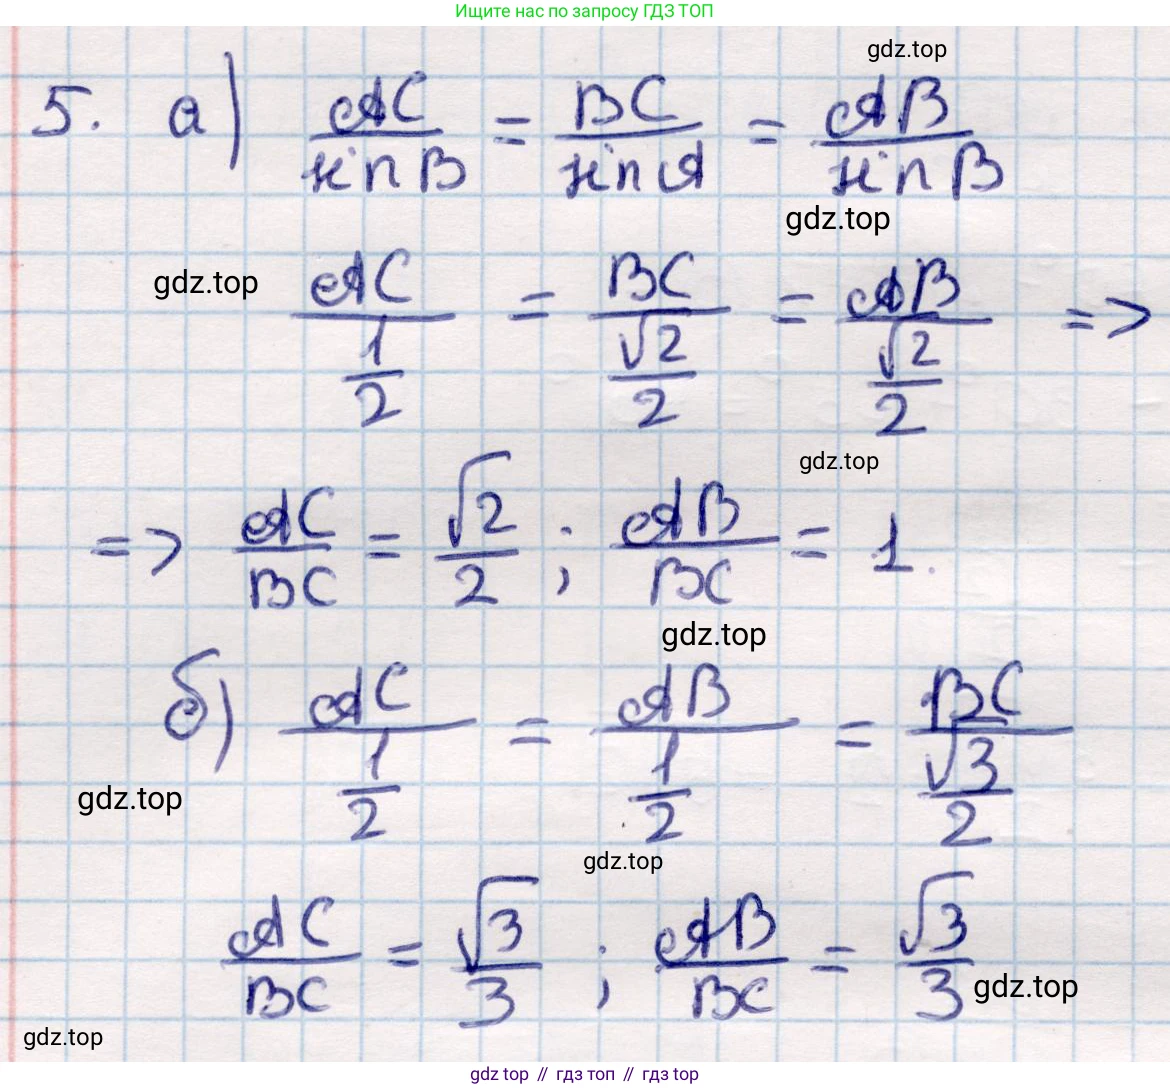 Ищите нас по запросу ГДЗ ТОП
gdz.top
5. а) AC/sin B = BC/sin A = AB/sin B
gdz.top
gdz.top
AC/(1/2) = BC/(√2/2) = AB/(√2/2) =>
gdz.top
=> AC/BC = √2/2 ; AB/BC = 1.
gdz.top
б) AC/(1/2) = AB/(1/2) = BC/(√3/2)
gdz.top
gdz.top
AC/BC = √3/3 ; AB/BC = √3/3
gdz.top
gdz.top
gdz top // гдз топ // гдз top